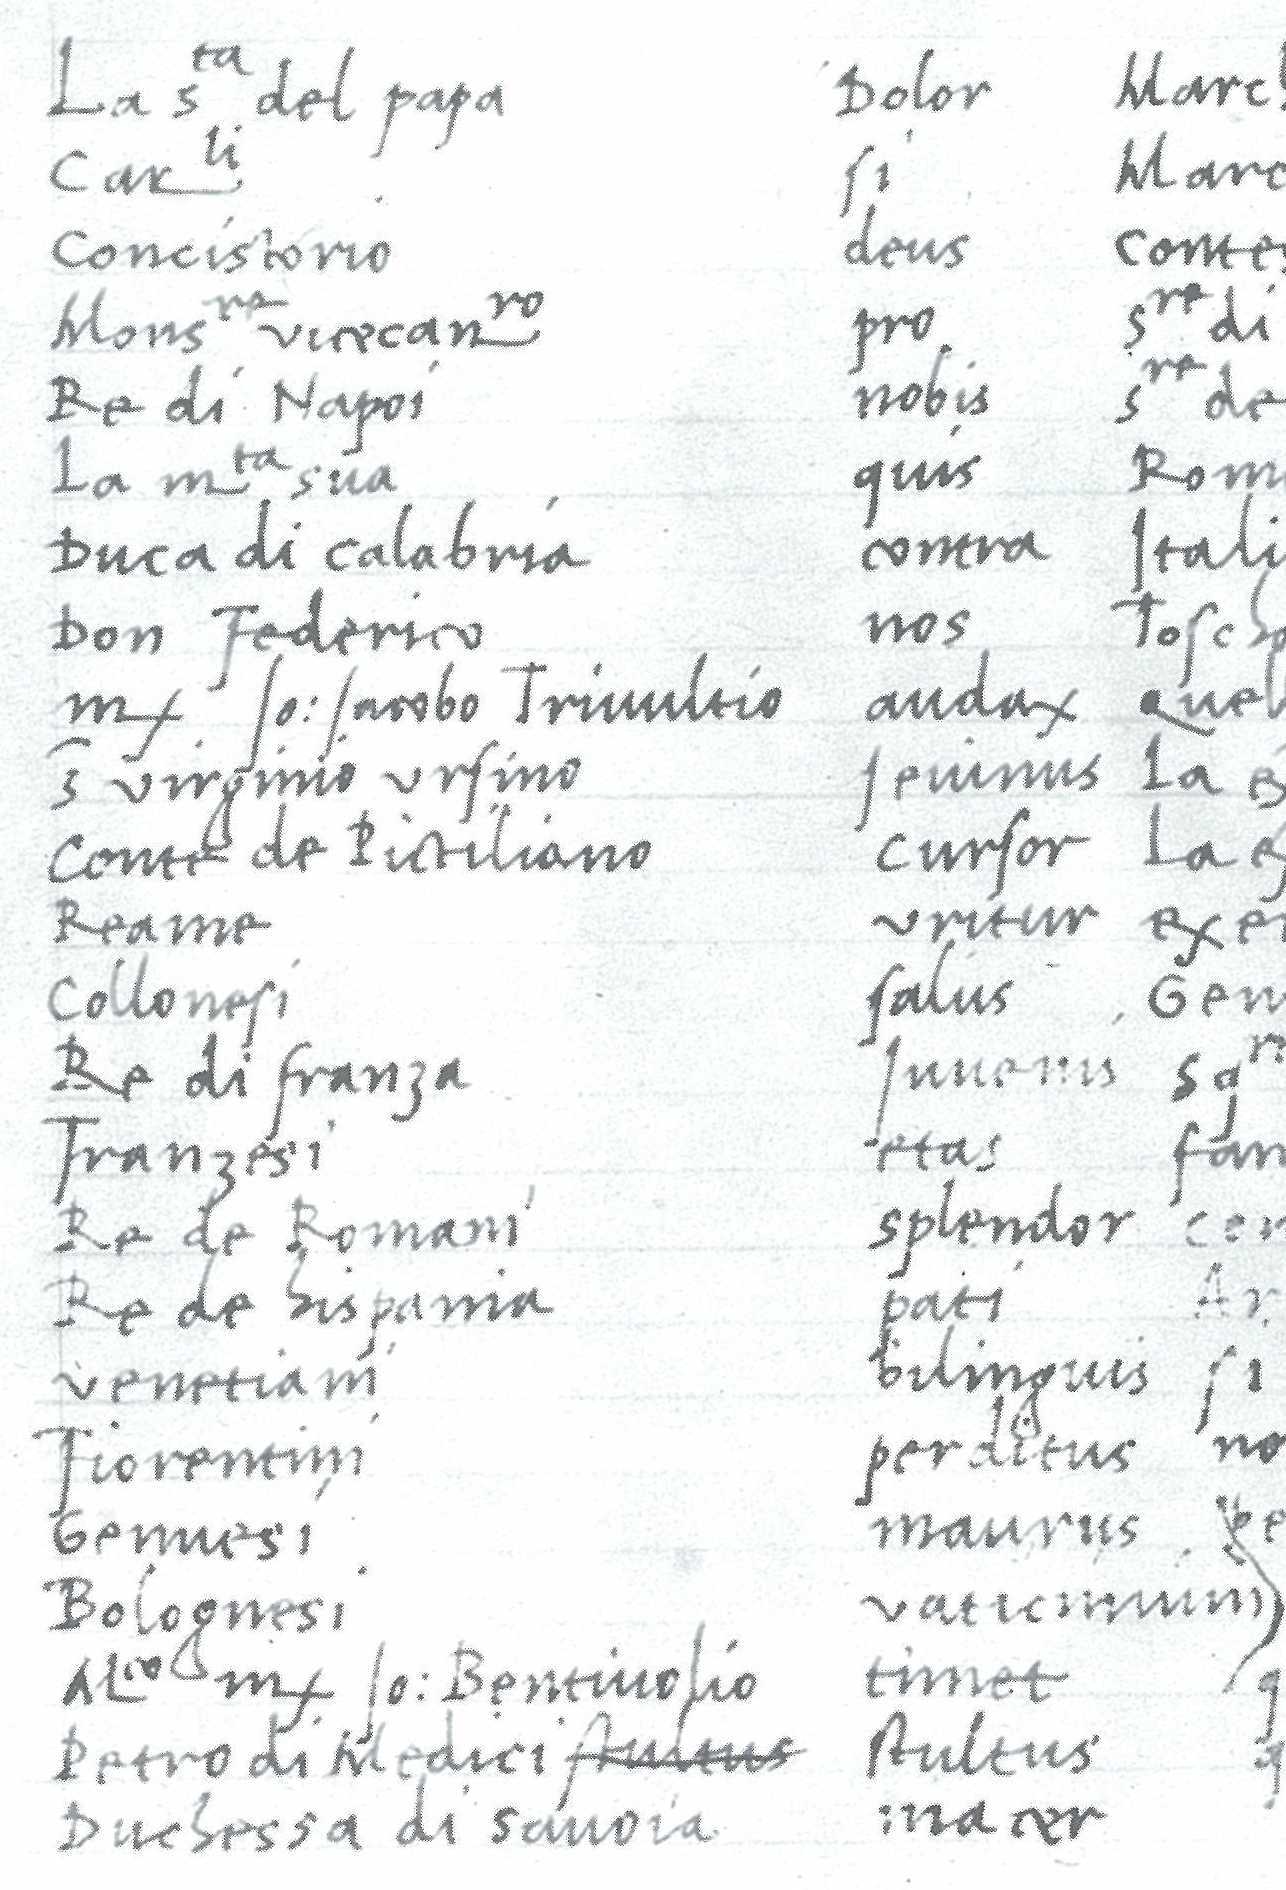 La s^ta del papa Dolor Marc
Car^li si Marc
Concistorio deus conte
Mons^re vicecan^ro pro s^re di
Re di Napoi nobis s^re de
La m^ta sua quis Rom
Duca di calabria contra Itali
Don Federico nos Tosch
mx Jo: Jacobo Triuultio audax quel
s virginio vrsino seuinus La e
Conte de Pictiliano cursor La e
Reame vritur exer
Collonesi salus Gen
Re di franza Juuenis
Franzesi etas fam
Re de Romani splendor cer
Re de hispania pati Ar
venetiani bilinguis si
Fiorentini perditus no
Genuesi maurus
Bolognesi vaticinium
mx Jo: Bentiuolio timet q
Petro di Medici stultus stultus
Duchessa di sauoia macer